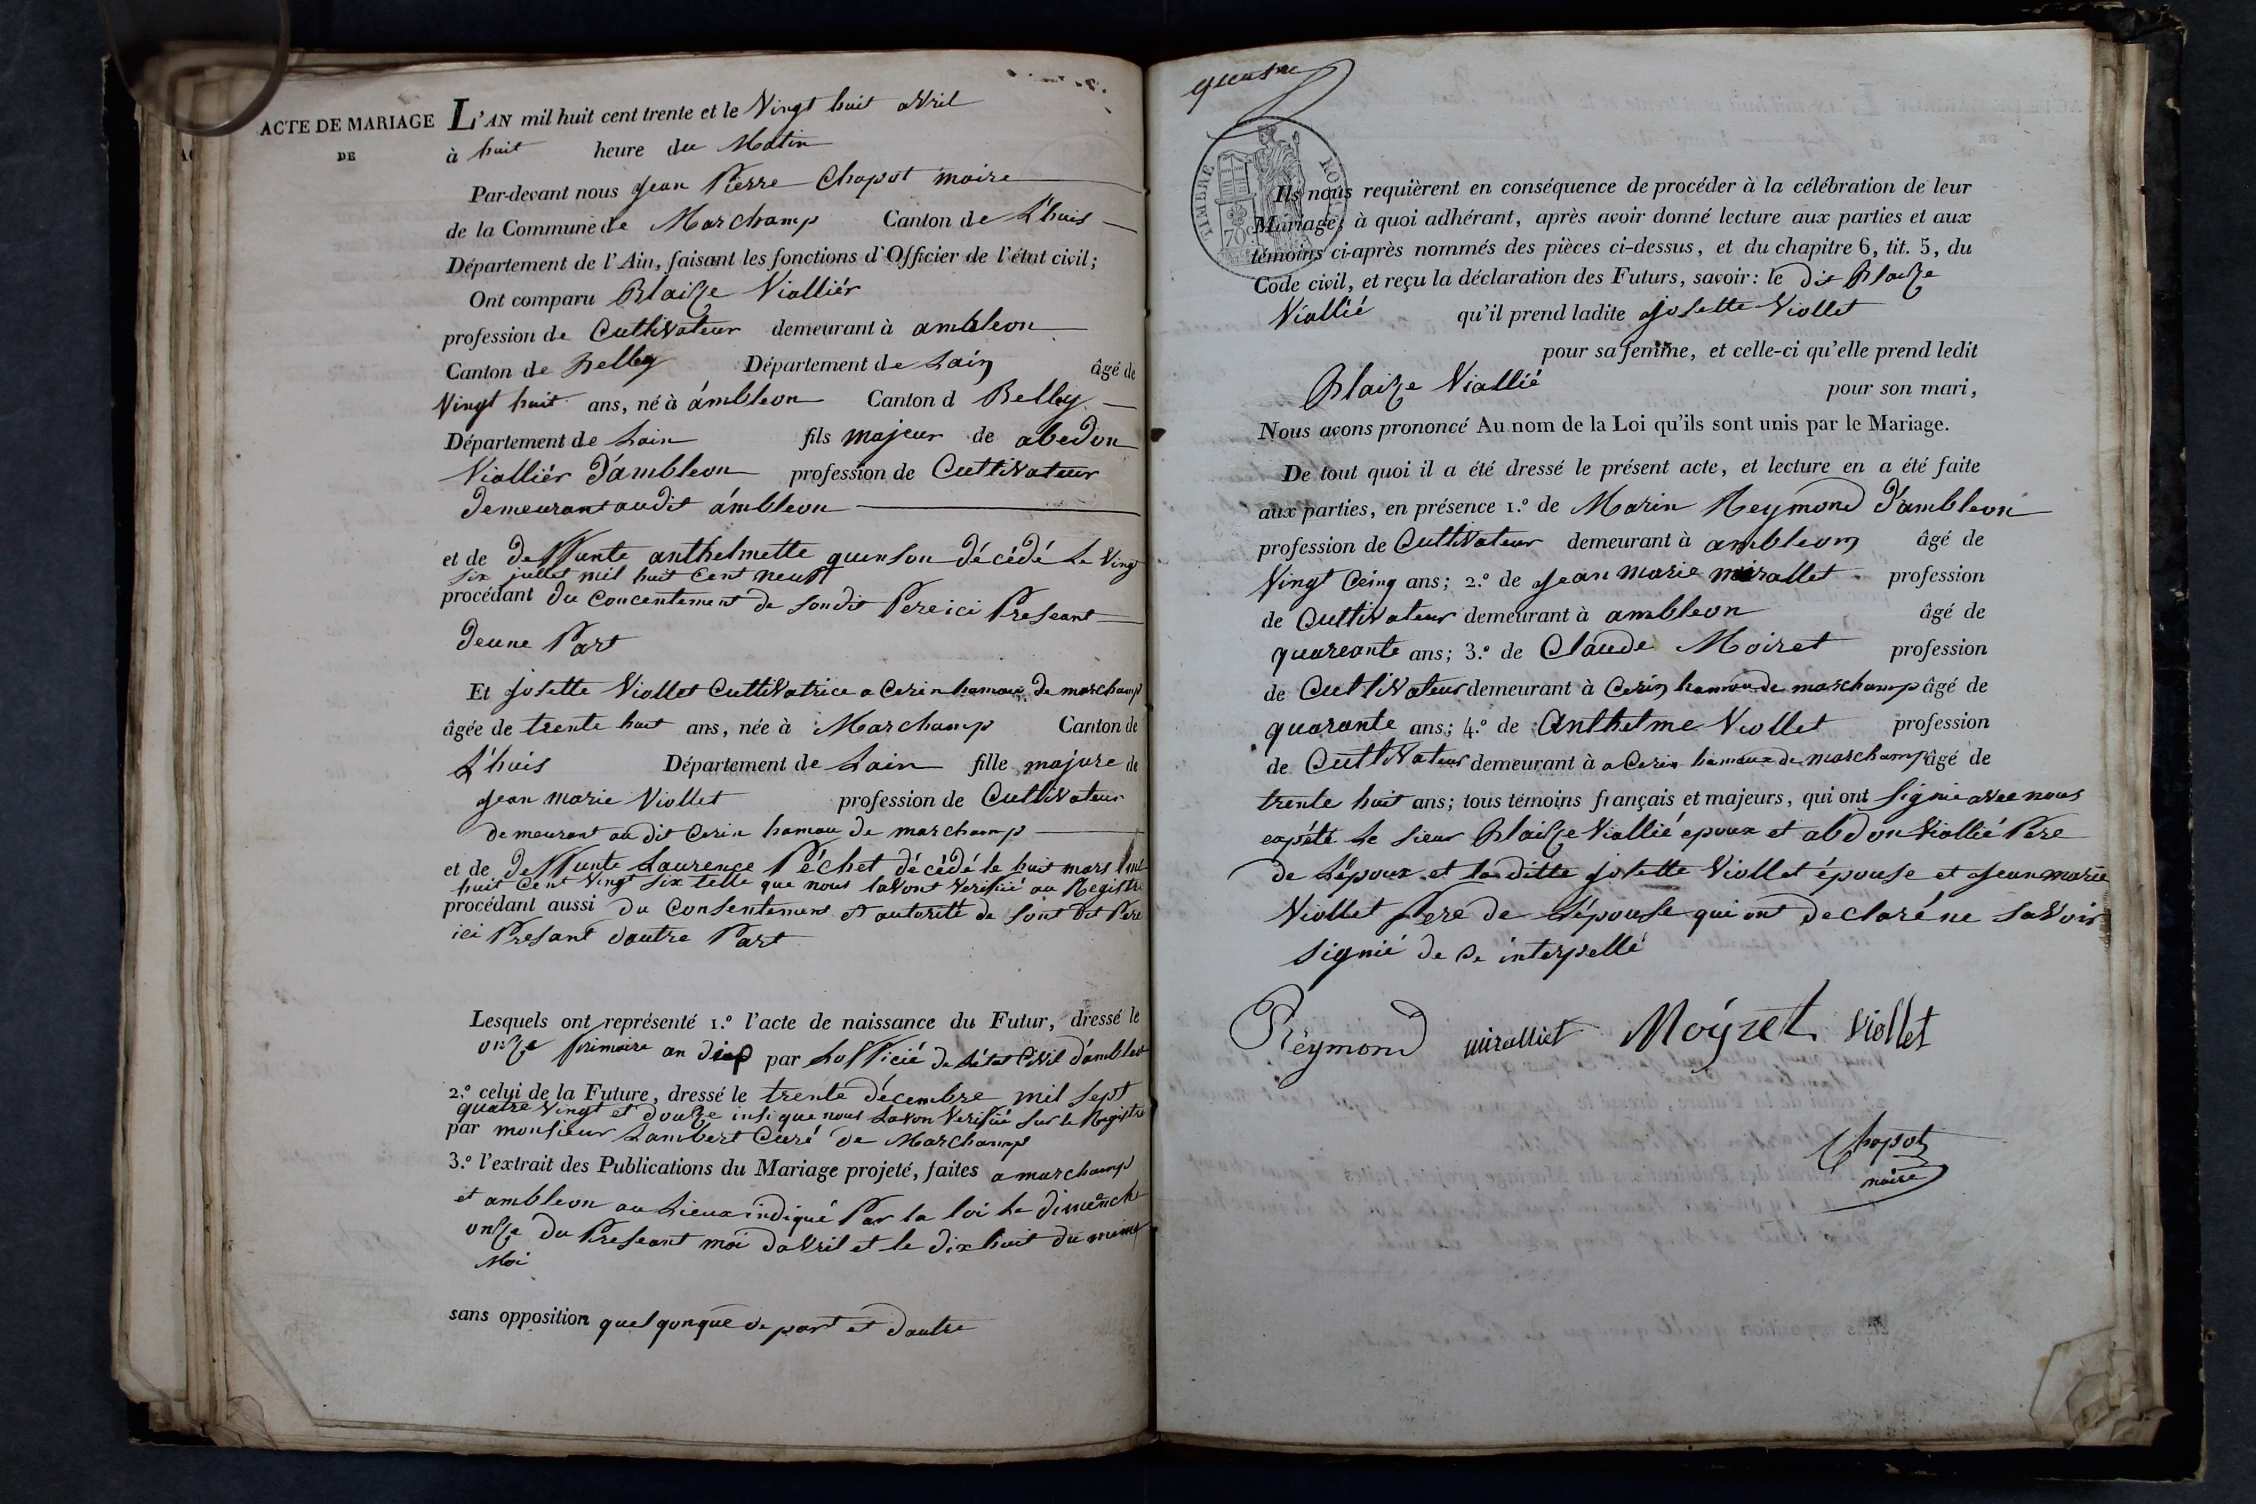 ACTE DE MARIAGE
DE
L'AN mil huit cent trente et le Vingt huit avril
à huit heure du Matin
Par-devant nous Jean Pierre Chapot maire
de la Commune de Marchamp Canton de L'huis
Département de l'Ain, faisant les fonctions d'Officier de l'état civil;
Ont comparu Blaize Vialliér
profession de Cultivateur demeurant à ambleon
Canton de Belley Département de Lain âgé de
Vingt huit ans, né à ámbleon Canton d Belley
Département de Lain fils majeur de abedon
Vialliér d'ambleon profession de Cultivateur
demeurant audit ámbleon
et de deffunte anthelmette quinson décédé Le Vingt
six juillet mil huit Cent neuf
procédant du Concentement de sondit Pere ici Preseant
deune Part
Et Josette Viollet Cultivatrice a Cerin hamau de marchamp
âgée de trente huit ans, née à Marchamp Canton de
L'huis Département de Lain fille majure de
Jean marie Viollet profession de Cultivateur
demeurant au dit Cerin hamau de marchamp
et de deffunte Laurence Péchet décédé le huit mars mil
huit Cent Vingt six telle que nous lavont Verifiié au Registre
procédant aussi du Consentement et autorité de sont dit Pere
ici Presant dautre Part
Lesquels ont représenté 1.º l'acte de naissance du Futur, dressé le
onze frimaire an diep par Lofficié de Létat Civil d'ambleon
2.º celui de la Future, dressé le trente décembre mil sept
quatre Vingt et douze insi que nous Lavon Verifiié sur le Registre
par monsieur Lambert Curé de Marchamp
3.º l'extrait des Publications du Mariage projeté, faites a marchamp
et ambleon au Lieux indiqué Par la loi Le dimench
onze du Preseant moi davril et le dix huit du meme
Moi
sans opposition quelqonque de part et dautre
TIMBRE ROYAL
70c
Ils nous requièrent en conséquence de procéder à la célébration de leur
Mariage; à quoi adhérant, après avoir donné lecture aux parties et aux
témoins ci-après nommés des pièces ci-dessus, et du chapitre 6, tit. 5, du
Code civil, et reçu la déclaration des Futurs, savoir: le dit Blaize
Viallié qu'il prend ladite Josette Viollet
pour sa femme, et celle-ci qu'elle prend ledit
Blaize Viallié pour son mari,
Nous avons prononcé Au nom de la Loi qu'ils sont unis par le Mariage.
De tout quoi il a été dressé le présent acte, et lecture en a été faite
aux parties, en présence 1.º de Marin Reymond d'ambleon
profession de Cultivateur demeurant à ambleon âgé de
Vingt Ceinq ans; 2.º de Jean marie mirallet profession
de Cultivateur demeurant à ambleon âgé de
quareante ans; 3.º de Claude Moiret profession
de Cultivateur demeurant à Cerin hamau de marchamp âgé de
quarante ans; 4.º de Anthelme Viollet profession
de Cultivateur demeurant à a Cerin hamaux de marchamp âgé de
trente huit ans; tous témoins français et majeurs, qui ont signie avec nous
expété Le sieur Blaize Viallié epoux et abdon Viallié Pere
de Lépoux et la ditte Josette Viollet épouse et Jean marie
Viollet Pere de Lépouse qui ont declaré ne savoir
signié de Ce interpellé
Reymond miralliet Moyret Viollet
Chapot
maire